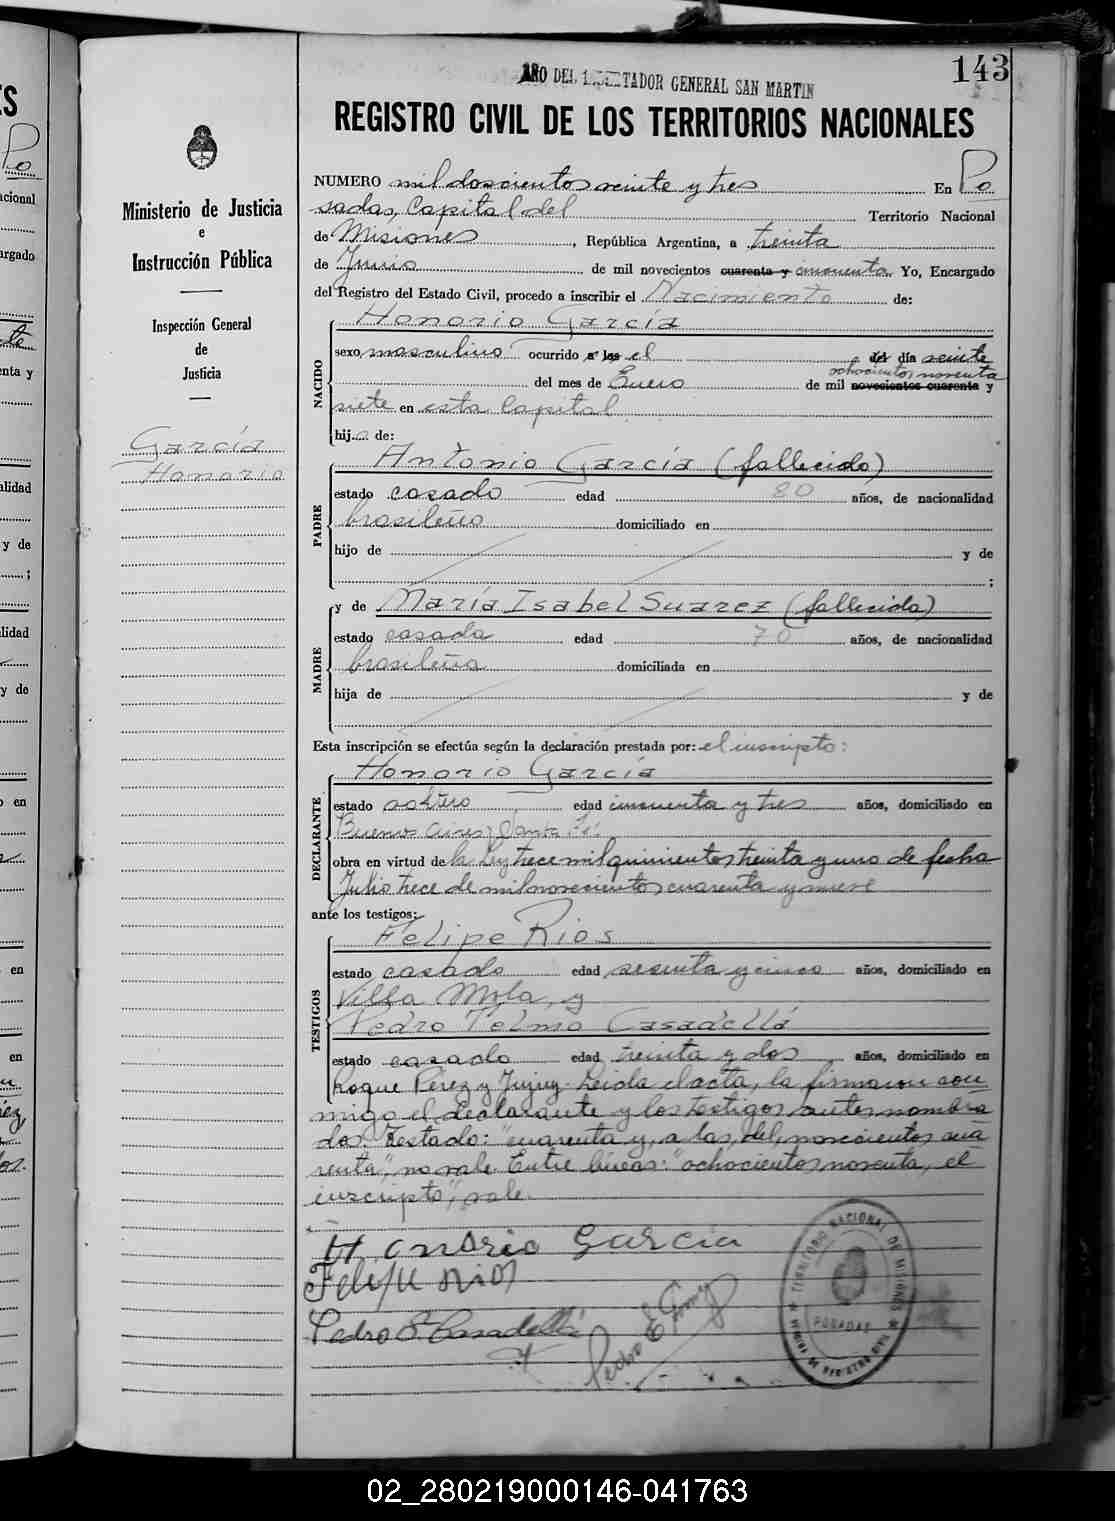 143
AÑO DEL LIBERTADOR GENERAL SAN MARTIN
REGISTRO CIVIL DE LOS TERRITORIOS NACIONALES
Ministerio de Justicia
e
Instrucción Pública
Inspección General
de
Justicia
García
Honorio
NUMERO mil doscientos veinte y tres En Po
sadas, Capital del Territorio Nacional
de Misiones, República Argentina, a treinta
de Junio de mil novecientos cuarenta y cincuenta. Yo, Encargado
del Registro del Estado Civil, procedo a inscribir el Nacimiento de:
NACIDO
Honorio García
sexo masculino ocurrido a las el del día veinte
ochocientos noventa
del mes de Enero de mil novecientos cuarenta y
siete en esta Capital
hijo de:
PADRE
Antonio García (fallecido)
estado casado edad 80 años, de nacionalidad
brasileño domiciliado en
hijo de y de
;
MADRE
y de María Isabel Suarez (fallecida)
estado casada edad 70 años, de nacionalidad
brasileña domiciliada en
hija de y de
Esta inscripción se efectúa según la declaración prestada por: el inscripto:
DECLARANTE
Honorio García
estado soltero edad cincuenta y tres años, domiciliado en
Buenos Aires y Santa Fé
obra en virtud de la Ley trece mil quinientos treinta y uno de fecha
Julio trece de mil novecientos cuarenta y nueve
ante los testigos:
TESTIGOS
Felipe Rios
estado casado edad sesenta y cinco años, domiciliado en
Villa Mola, y
Pedro Telmo Casadellá
estado casado edad treinta y dos años, domiciliado en
Roque Pérez y Jujuy. Leida el acta, la firmaron con
migo el declarante y los testigos antes nombra
dos. Testado: "cuarenta y, a las, del, novecientos cua
renta", no vale. Entre líneas: "ochocientos noventa, el
inscripto", vale.
Honorio Garcia
Felipe Rios
Pedro T. Casadellá
Pedro E
TERRITORIO NACIONAL DE MISIONES
POSADAS
02_280219000146-041763